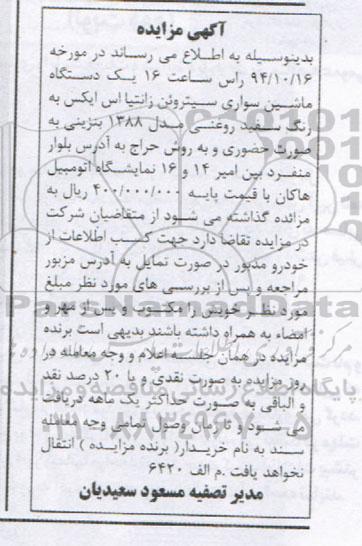 آگهی مزایده
بدینوسیله به اطلاع می رساند در مورخه
۹۴/۱۰/۱۶ راس ساعت ۱۶ یک دستگاه
ماشین سواری سیتروئن زانتیا اس ایکس به
رنگ سفید روغنی مدل ۱۳۸۸ بنزینی به
صورت حضوری و به روش حراج به آدرس بلوار
منفرد بین امیر ۱۴ و ۱۶ نمایشگاه اتومبیل
هاکان با قیمت پایه ۴۰۰/۰۰۰/۰۰۰ ریال به
مزائده گذاشته می شود از متقاضیان شرکت
در مزایده تقاضا دارد جهت کسب اطلاعات از
خودرو مذبور در صورت تمایل به آدرس مزبور
مراجعه و پس از بررسی های مورد نظر مبلغ
مورد نظر خویش را مکتوب و پس از مهر و
امضاء به همراه داشته باشند بدیهی است برنده
مزایده در همان جلسه اعلام و وجه معامله در
روز مزایده به صورت نقدی و یا ۲۰ درصد نقد
و الباقی به صورت حداکثر یک ماهه دریافت
می شود و تا زمان وصول تمامی وجه معامله
سند به نام خریدار( برنده مزایده ) انتقال
نخواهد یافت .م الف ۶۴۲۰
مدیر تصفیه مسعود سعیدیان
ParsNamadData
پایگاه اطلاع رسانی مناقصه و مزایده
۰۲۱-۸۸۳۴۹۶۷۰-۵